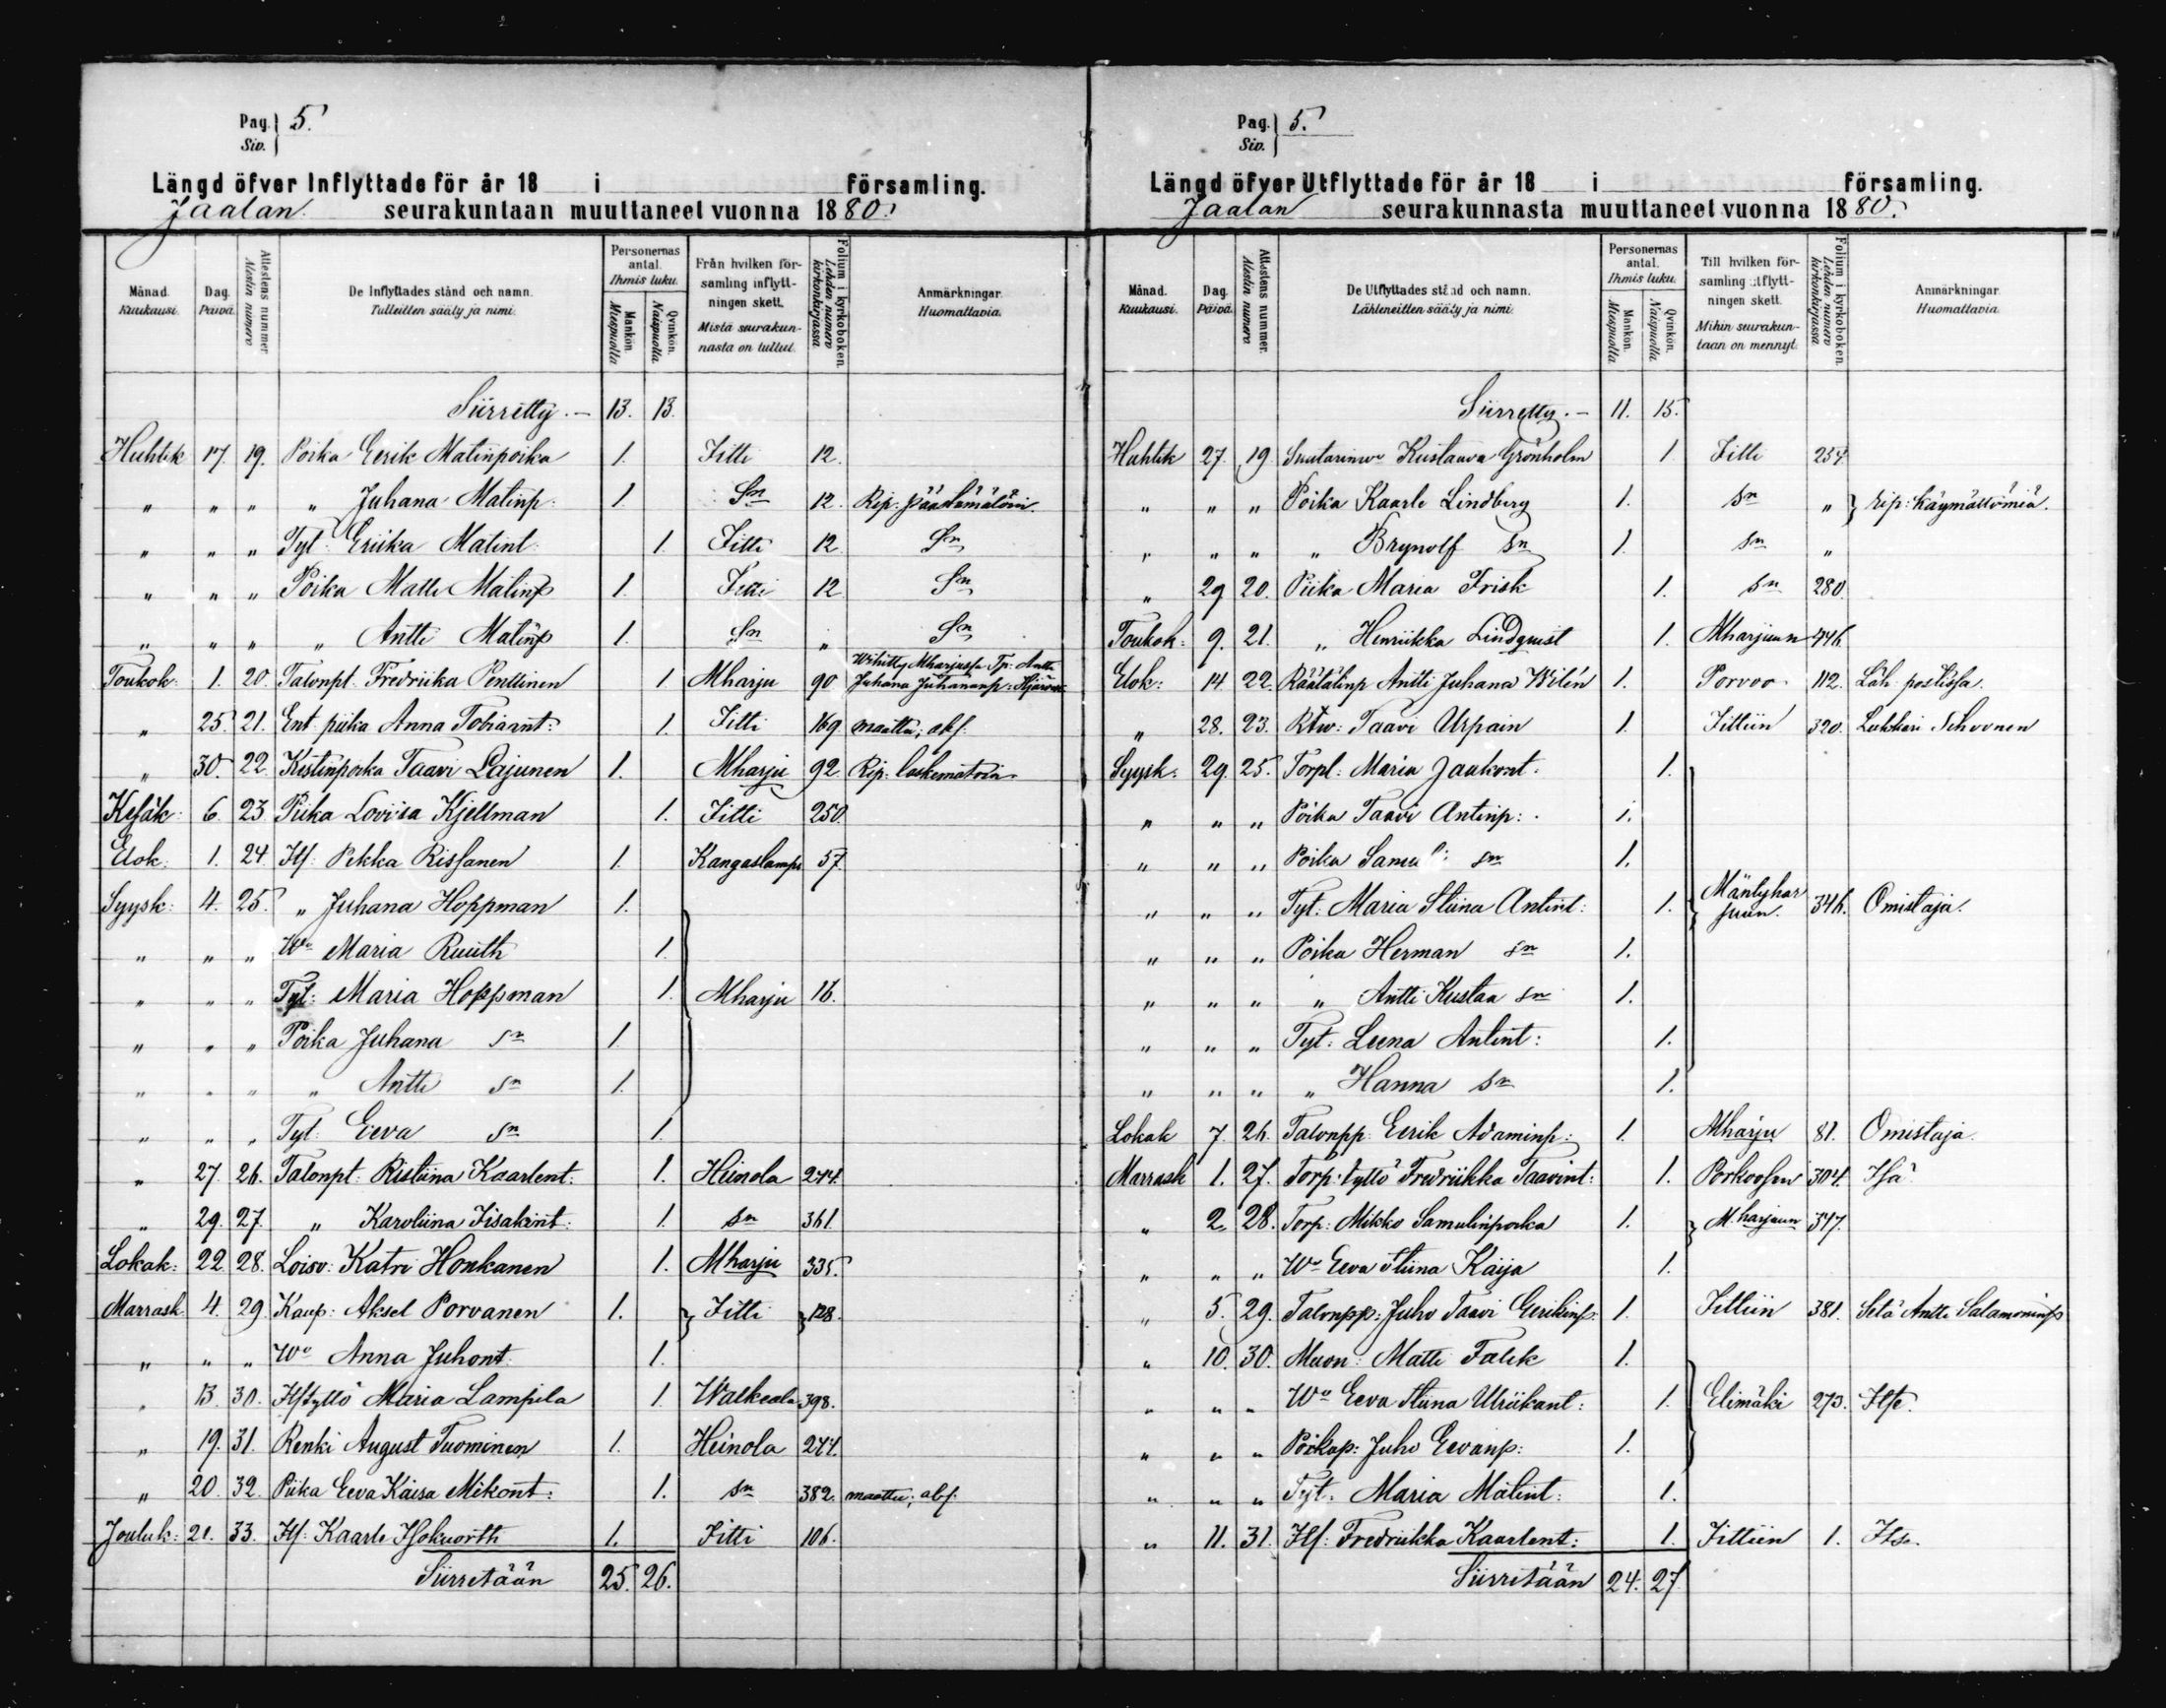 Pag. Siv. 5.
Längd öfver Inflyttade för år 18 i församling.
Jaalan seurakuntaan muuttaneet vuonna 1880.
Månad. Kuukausi.
Dag. Päivä.
Attestens nummer. Atestin numero
De Inflyttades stånd och namn. Tulleitten sääty ja nimi.
Personernas antal. Ihmis luku.
Mankön. Miespuolia.
Qvinkön. Naispuolia.
Från hvilken församling inflyttningen skett. Mistä seurakunnasta on tullut.
Folium i kyrkoboken. Lehden numero kirkonkirjassa
Anmärkningar. Huomattavia.
Siirretty.— 13. 13.
Huhtik 17. 19. Poika Eerik Matinpoika 1. Iitti 12.
„ „ „ „ Juhana Matinp: 1. Sn 12. Rip. päästämätöin.
„ „ „ Tyt: Eriika Matint 1. Iitti 12 Sn
„ „ „ Poika Matti Matinp 1. Iitti 12 Sn
„ „ „ „ Antti Matinp 1. Sn „ Sn
Toukok: 1. 20. Talonpt. Fredriika Penttinen 1. Mharju 90 Wihitty Mharjussa Tp: Antti
Juhana Juhananp:
„ 25. 21. Ent. piika Anna Tobiant: 1. Iitti 169. maattu; abs.
„ 30. 22. Kestinpoika Taavi Lajunen 1. Mharju 92. Rip: laskematoin
Kesäk: 6. 23. Piika Loviisa Kjellman 1. Iitti 250.
Elok: 1. 24. Itl: Pekka Rissanen 1. Kangaslampi 57.
Syysk: 4. 25. „ Juhana Hoppman 1.
„ „ „ Wo Maria Ruuth 1.
„ „ „ Tyt: Maria Hoppman 1. Mharju 16.
„ „ „ Poika Juhana sn 1.
„ „ „ „ Antti sn 1.
„ „ „ Tyt: Eeva sn 1.
„ 27. 26. Talonpt. Ristiina Kaarlent: 1. Heinola 244.
„ 29. 27. „ Karoliina Iisakint: 1. sn 361.
Lokak: 22. 28. Loisv: Katri Honkanen 1. Mharju 335.
Marrask. 4. 29. Kaup: Aksel Porvanen 1. Iitti 128.
„ „ „ Wo Anna Juhont. 1.
„ 13. 30. Itstyttö Maria Lampila 1. Walkeala 398.
„ 19. 31. Renki August Tuominen 1. Heinola 244.
„ 20. 32. Piika Eeva Kaisa Mikont: 1. sn 382. maattu; abs.
Jouluk: 21. 33. Itl: Kaarle Isokuortti 1. Iitti 106.
Siirretään 25. 26.
Pag. Siv. 5.
Längd öfver Utflyttade för år 18 i församling.
Jaalan seurakunnasta muuttaneet vuonna 1880.
Månad. Kuukausi.
Dag. Päivä.
Attestens nummer. Atestin numero
De Utflyttades stånd och namn. Lähteneitten sääty ja nimi.
Personernas antal. Ihmis luku.
Mankön. Miespuolia.
Qvinkön. Naispuolia.
Till hvilken församling utflyttningen skett. Mihin seurakuntaan on mennyt.
Folium i kyrkoboken. Lehden numero kirkonkirjassa
Anmärkningar. Huomattavia.
Siirretty.— 11. 15.
Huhtik 27. 19. Suutarinwo Kustaava Grönholm 1 Iitti 254.
„ „ „ Poika Kaarle Lindberg 1. sn „ rip: käymättömiä.
„ „ „ „ Brynolf sn 1. sn „
„ 29 20. Piika Maria Frisk 1. sn 280.
Toukok: 9. 21. „ Henriikka Lindqvist 1. Mharjuun 446.
Elok: 14. 22. Räätälinp Antti Juhana Wilén 1. Porvoo 112. Läh. postissa.
„ 28. 23. Rtw: Taavi Urpain 1. Iittiin 320. Lukkari Schoonen
Syysk: 29. 25. Torpl: Maria Jaakont. 1.
„ „ „ Poika Taavi Antinp: 1.
„ „ „ Poika Samul: sn 1.
„ „ „ Tyt: Maria Stiina Antint: 1. Mäntyharjuun. 346. Omistaja.
„ „ „ Poika Herman sn 1.
„ „ „ „ Antti Kustaa sn 1.
„ „ „ Tyt: Leena Antint: 1.
„ „ „ „ Hanna sn 1.
Lokak 7. 26. Talonpp: Eerik Adaminp: 1. Mharju 81. Omistaja.
Marrask 1. 27. Torp: tyttö Fredriikka Taavint: 1. 304. Isä
„ 2. 28. Torp: Mikko Samulinpoika 1. M.harjuun 347.
„ „ „ Wo Eeva Stiina Kaija 1.
„ 5. 29. Talonpp: Juho Taavi Eerikinp. 1. Iittiin 381. Setä Antti Salamoninp
„ 10. 30. Muon: Matti Falck 1.
„ „ „ Wo Eeva Stiina Ulriikant: 1. Elimäki 273. Itse.
„ „ „ Poikap: Juho Eevanp: 1.
„ „ „ Tyt. Maria Matint: 1.
„ 11. 31. Itl: Fredriikka Kaarlent: 1. Iittiin 1. Itse.
Siirretään 24. 27.